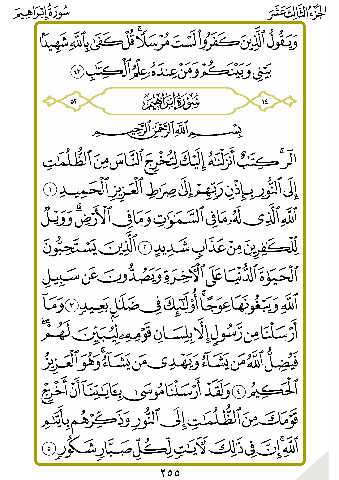 سُورَةُ إِبْرَاهِيم الجُزْءُ الثَّالِثَ عَشَرَ
وَيَقُولُ الَّذِينَ كَفَرُوا لَسْتَ مُرْسَلًا ۚ قُلْ كَفَىٰ بِاللَّهِ شَهِيدًا
بَيْنِي وَبَيْنَكُمْ وَمَنْ عِندَهُ عِلْمُ الْكِتَٰبِ ﴿٤٣﴾
٥٢ سُورَةُ إِبْرَاهِيمَ ١٤
بِسْمِ اللَّهِ الرَّحْمَٰنِ الرَّحِيمِ
الٓر ۚ كِتَٰبٌ أَنزَلْنَٰهُ إِلَيْكَ لِتُخْرِجَ النَّاسَ مِنَ الظُّلُمَٰتِ
إِلَى النُّورِ بِإِذْنِ رَبِّهِمْ إِلَىٰ صِرَٰطِ الْعَزِيزِ الْحَمِيدِ ﴿١﴾
اللَّهِ الَّذِي لَهُ مَا فِي السَّمَٰوَٰتِ وَمَا فِي الْأَرْضِ ۗ وَوَيْلٌ
لِّلْكَٰفِرِينَ مِنْ عَذَابٍ شَدِيدٍ ﴿٢﴾ الَّذِينَ يَسْتَحِبُّونَ
الْحَيَوٰةَ الدُّنْيَا عَلَى الْءَاخِرَةِ وَيَصُدُّونَ عَن سَبِيلِ
اللَّهِ وَيَبْغُونَهَا عِوَجًا ۚ أُولَٰئِكَ فِي ضَلَٰلٍ بَعِيدٍ ﴿٣﴾ وَمَا
أَرْسَلْنَا مِن رَّسُولٍ إِلَّا بِلِسَانِ قَوْمِهِ لِيُبَيِّنَ لَهُمْ ۖ
فَيُضِلُّ اللَّهُ مَن يَشَاءُ وَيَهْدِي مَن يَشَاءُ ۚ وَهُوَ الْعَزِيزُ
الْحَكِيمُ ﴿٤﴾ وَلَقَدْ أَرْسَلْنَا مُوسَىٰ بِـَٔايَٰتِنَا أَنْ أَخْرِجْ
قَوْمَكَ مِنَ الظُّلُمَٰتِ إِلَى النُّورِ وَذَكِّرْهُم بِأَيَّىٰمِ
اللَّهِ ۚ إِنَّ فِي ذَٰلِكَ لَءَايَٰتٍ لِّكُلِّ صَبَّارٍ شَكُورٍ ﴿٥﴾
٢٥٥